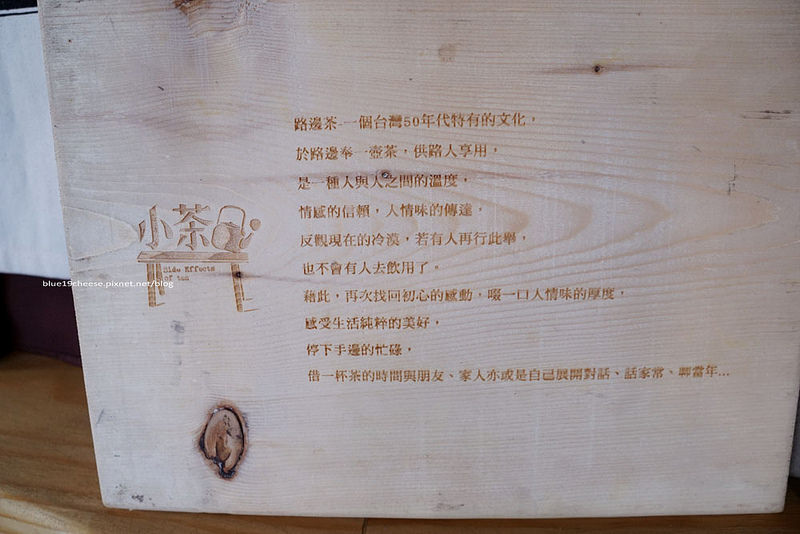 路邊茶 一個台灣50年代特有的文化，
於路邊奉一壺茶，供路人享用，
是一種人與人之間的溫度，
情感的信賴，人情味的傳達，
反觀現在的冷漠，若有人再行此舉，
也不會有人去飲用了。
藉此，再次找回初心的感動，啜一口人情味的厚度，
感受生活純粹的美好，
停下手邊的忙碌，
借一杯茶的時間與朋友、家人亦或是自己展開對話、話家常、聊當年...
小茶
Side Effects
of tea
blue19cheese.pixnet.net/blog